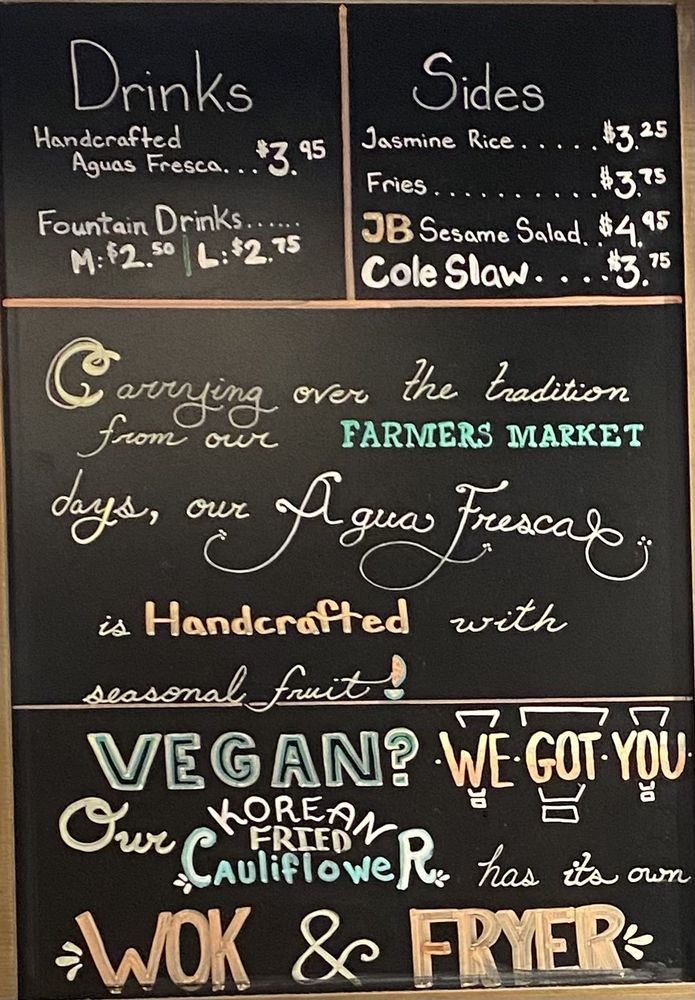 Drinks
Handcrafted
Aguas Fresca... $3.95
Fountain Drinks......
M: $2.50 | L: $2.75
Sides
Jasmine Rice..... $3.25
Fries.......... $3.75
JB Sesame Salad.. $4.95
Cole Slaw.... $3.75
Carrying over the tradition
from our FARMERS MARKET
days, our Agua Fresca
is Handcrafted with
seasonal fruit!
VEGAN? ·WE·GOT·YOU·
Our KOREAN
FRIED
CAulifloweR has its own
WOK & FRYER